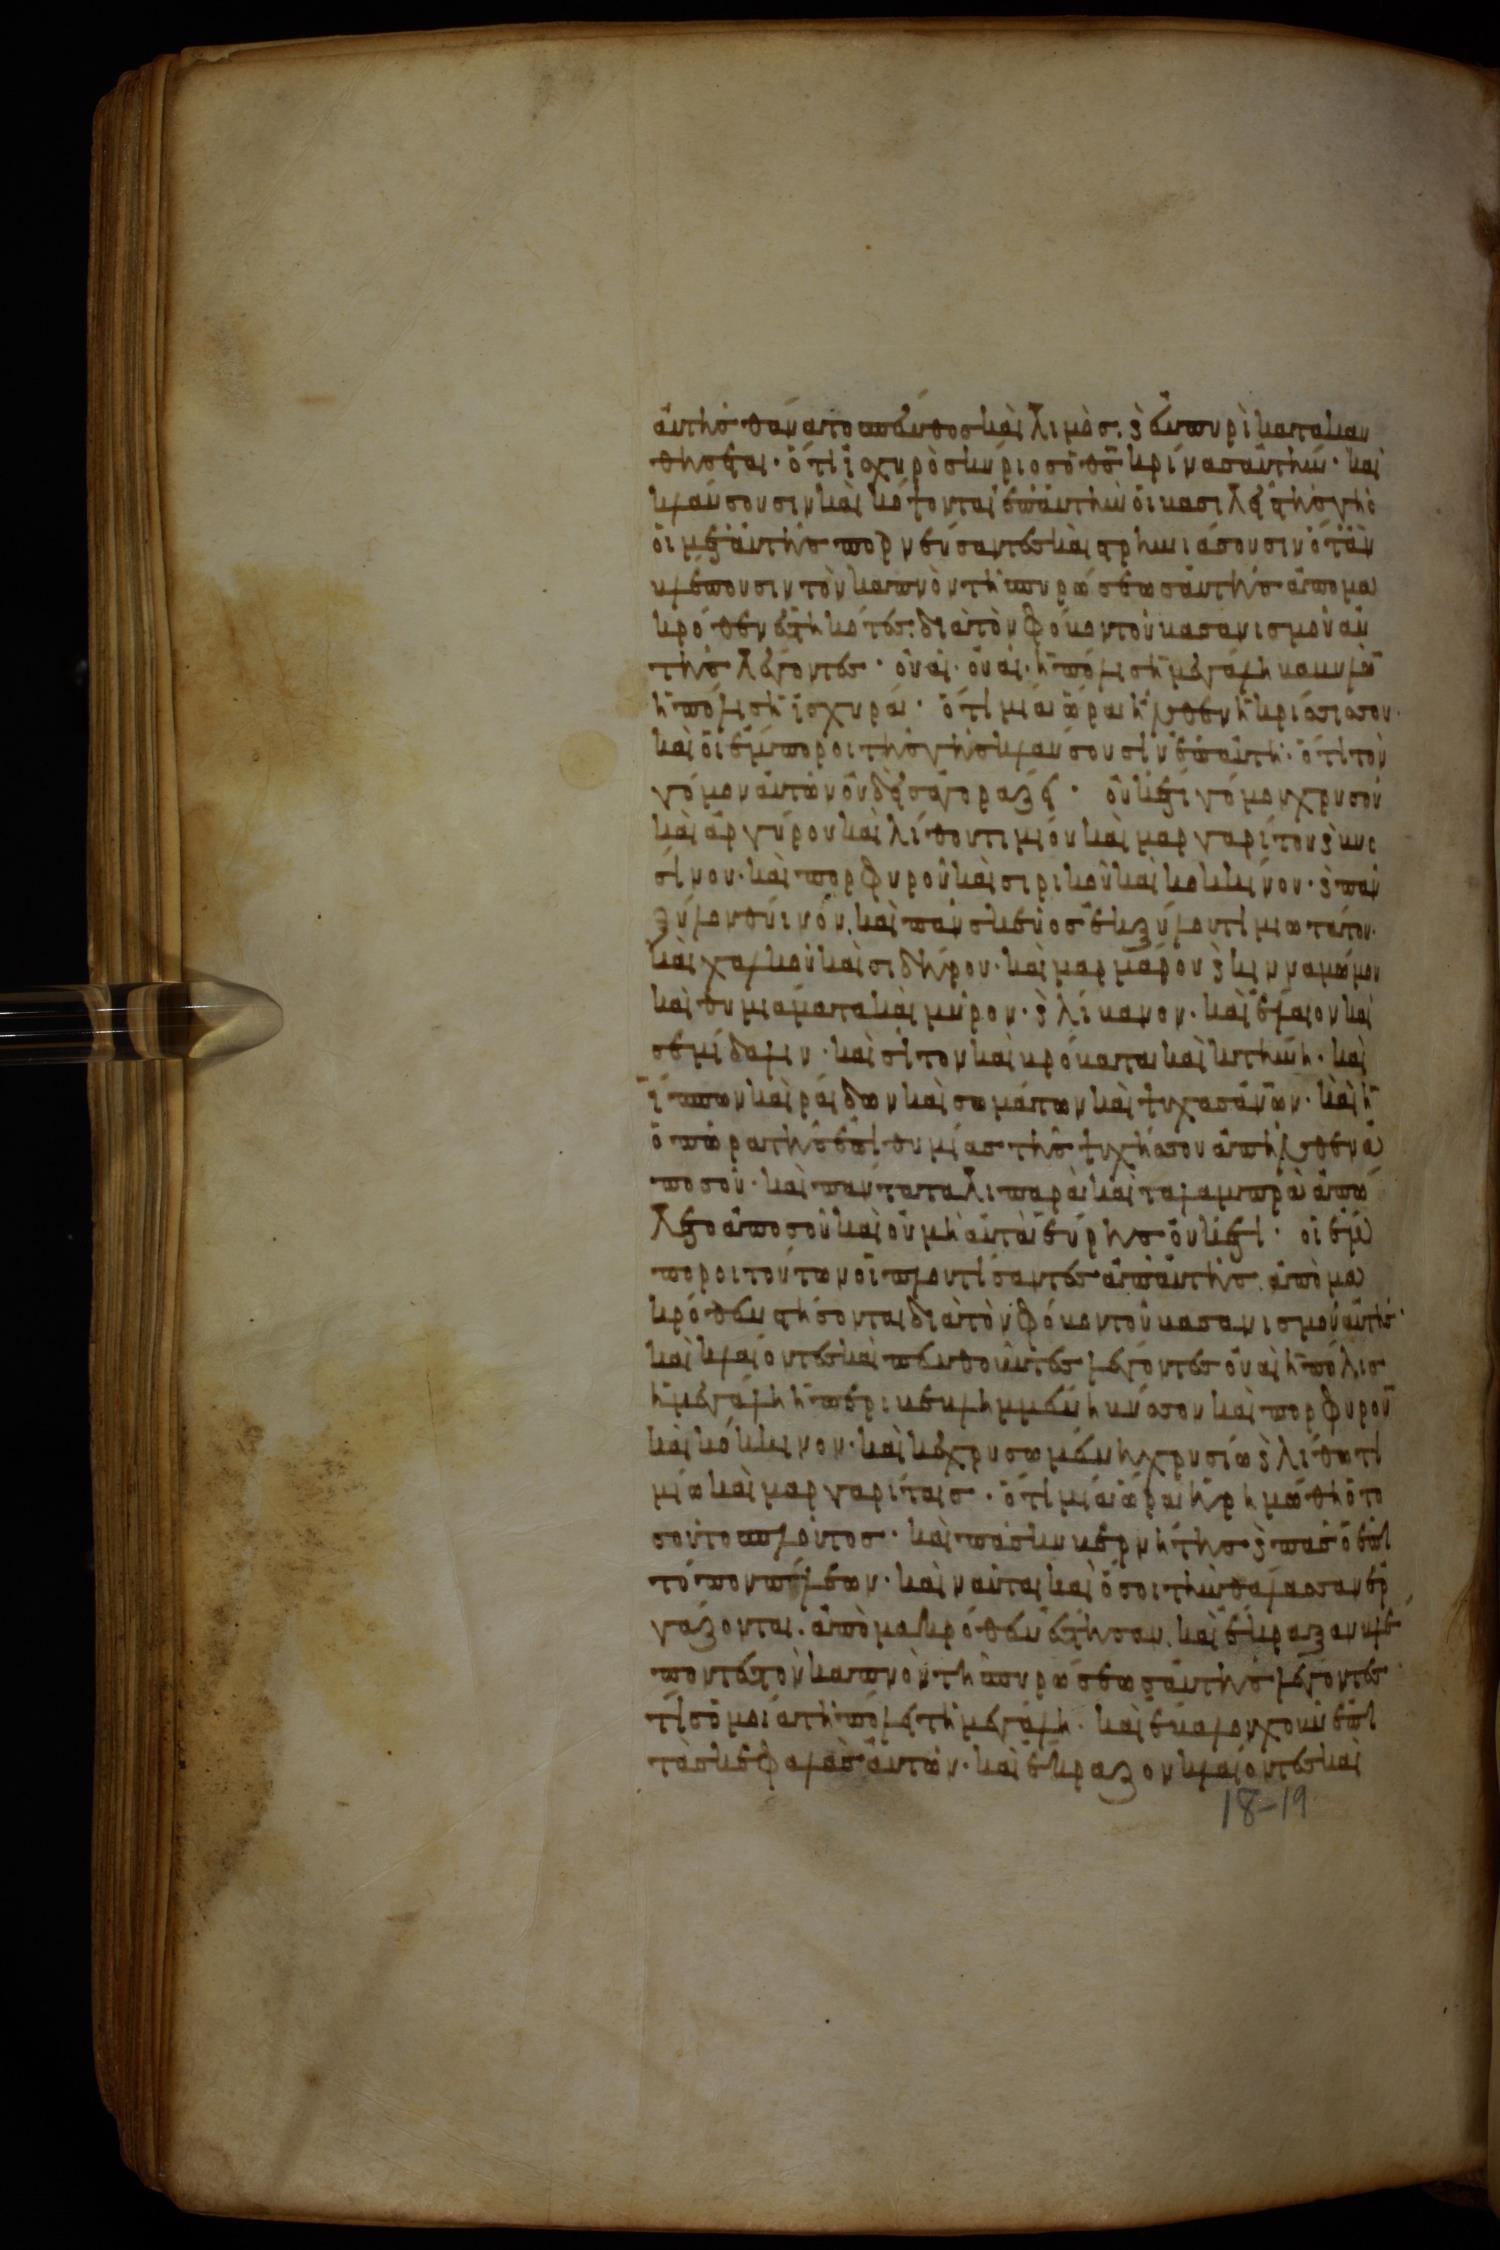 αὐτῆς θάνατος πένθος καὶ λιμὸς· καὶ ἐν πυρὶ κατακαυ
θήσεται· ὅτι ἰσχυρὸς κύριος ὁ θς κρίνας αὐτήν· καὶ
κλαύσουσιν καὶ κόψονται ἐπ αὐτὴν οἱ βασιλεῖς τῆς γῆς
οἱ μετ αὐτῆς πορνεύσαντες καὶ στρηνιάσουσιν ὅταν
βλέπουσιν τὸν καπνὸν τῆς πυρώσεως αὐτῆς ἀπο μα
κρόθεν ἑστηκότες· διὰ τὸν φόβον τοῦ βασανισμοῦ αὐ
τῆς λέγοντες· οὐαὶ· οὐαὶ· ἡ πόλις ἡ μεγάλη βαβυλὼν
ἡ πόλις ἡ ἰσχυρά· ὅτι μιᾶ ὥρα ἦλθεν ἡ κρίσις σου·
καὶ οἱ ἔμποροι τῆς γῆς κλαύσουσιν ἐπ αὐτῆ· ὅτι τὸν
γόμον αὐτῶν οὐδεὶς ἀγοράζει· οὐκέτι γόμον χρυσοῦ
καὶ ἀργύρου καὶ λίθου τιμίου καὶ μαργαρίτου καὶ βυσ
σίνου· καὶ πορφυροῦ καὶ σιρικοῦ καὶ κοκκίνου· καὶ πᾶν
ξύλον θύινον, καὶ πᾶν σκεῦος ἐκ ξύλου τιμιωτάτου·
καὶ χαλκοῦ καὶ σιδήρου· καὶ μαρμάρου καὶ κινναμώμου
καὶ θυμιάματα καὶ μύρον· καὶ λίβανον· καὶ ἔλαιον καὶ
σεμίδαλιν· καὶ σῖτον καὶ πρόβατα καὶ κτήνη· καὶ
ἵππων καὶ ῥαιδῶν καὶ σωμάτων καὶ ψυχὰς ἀνων· καὶ ἡ
ὀπώρα τῆς ἐπιθυμίας τῆς ψυχῆς σου ἀπῆλθεν ἀ
πὸ σοῦ· καὶ πάντα τὰ λιπαρὰ καὶ τὰ λαμπρὰ ἀπώ
λετο ἀπὸ σοῦ καὶ οὐ μὴ αὐτὰ εὕρης οὐκέτι· οἱ ἔμ
ποροι τούτων οἱ πλουτίσαντες ἀπ αὐτῆς, ἀπὸ μα
κρόθεν στήσονται διὰ τὸν φόβον τοῦ βασανισμοῦ αὐτῆς·
καὶ κλαίοντες καὶ πενθοῦντες λέγοντες οὐαὶ ἡ πόλις
ἡ μεγάλη ἡ περιβεβλημμένη βύσσον καὶ πορφυροῦν
καὶ κόκκινον· καὶ κεχρυσωμένη χρυσίω καὶ λίθω τι
μίω καὶ μαργαρίταις· ὅτι μιᾶ ὥρα ἠρημώθη ὁ το
σοῦτος πλοῦτος· καὶ πᾶς κυβερνήτης καὶ πᾶς ὁ ἐπὶ
τόπον πλέων· καὶ ναῦται καὶ ὅσοι τὴν θάλασσαν ἐρ
γάζονται· ἀπὸ μακρόθεν ἔστησαν, καὶ ἔκραξαν βλέ
ποντες τὸν καπνὸν τῆς πυρώσεως αὐτῆς λέγοντες·
τίς ὁμοία τῆ πόλει τῆ μεγάλη· καὶ ἔβαλον χοῦν ἐπὶ
τὰς κεφαλὰς αὐτῶν· καὶ ἔκραζον κλαίοντες καὶ
18-19